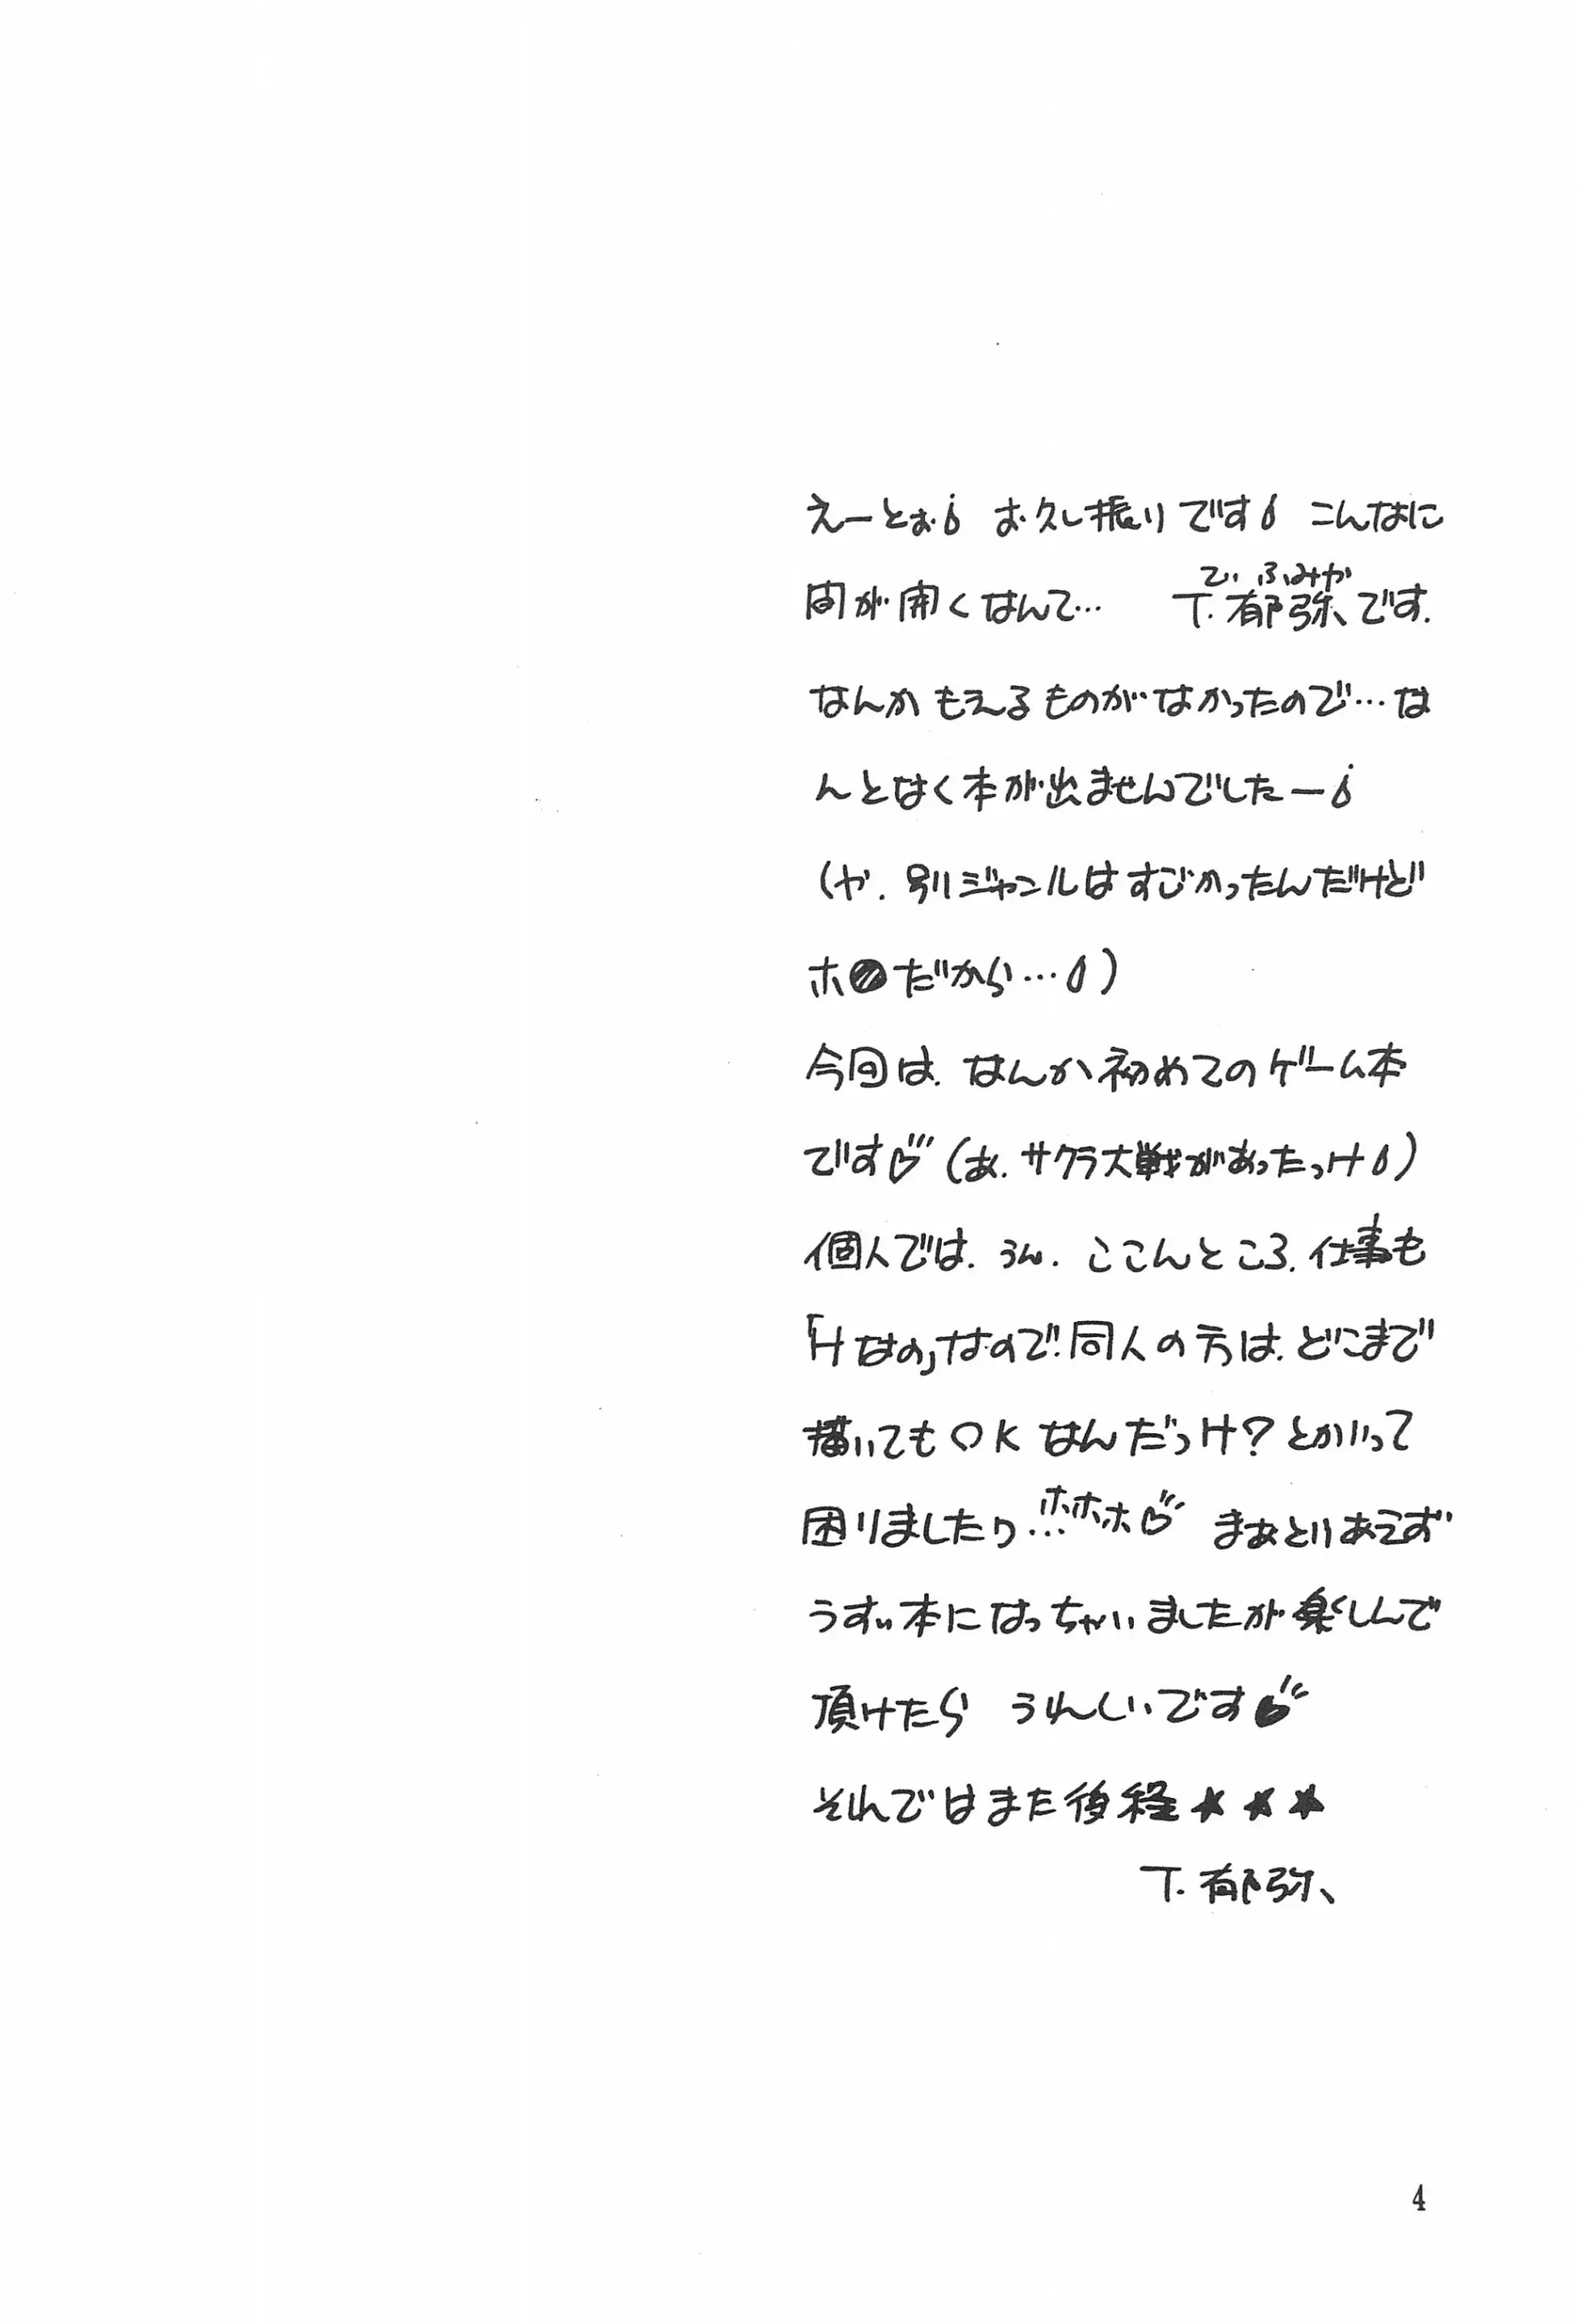 えーとぉ お久し振りです こんなに
間が開くなんて… T.郁弥、です.
てぃ ふみや
なんか もえるものがなかったので…な
んとなく本が出ませんでしたー
(や.別ジャンルはすごかったんだけど
ホ●だから…)
今回は.なんか初めてのゲーム本
です♡(あ.サクラ大戦があったっけ)
個人では.うん.ここんところ.仕事も
「Hなの」なので!同人の方は.どこまで
描いてもOKなんだっけ?とかいって
困りましたり…ホホホ♡ まぁとりあえず
うすい本になっちゃいましたが楽しんで
頂けたら うれしいです♥
それではまた後程★★★
T.郁弥、
4